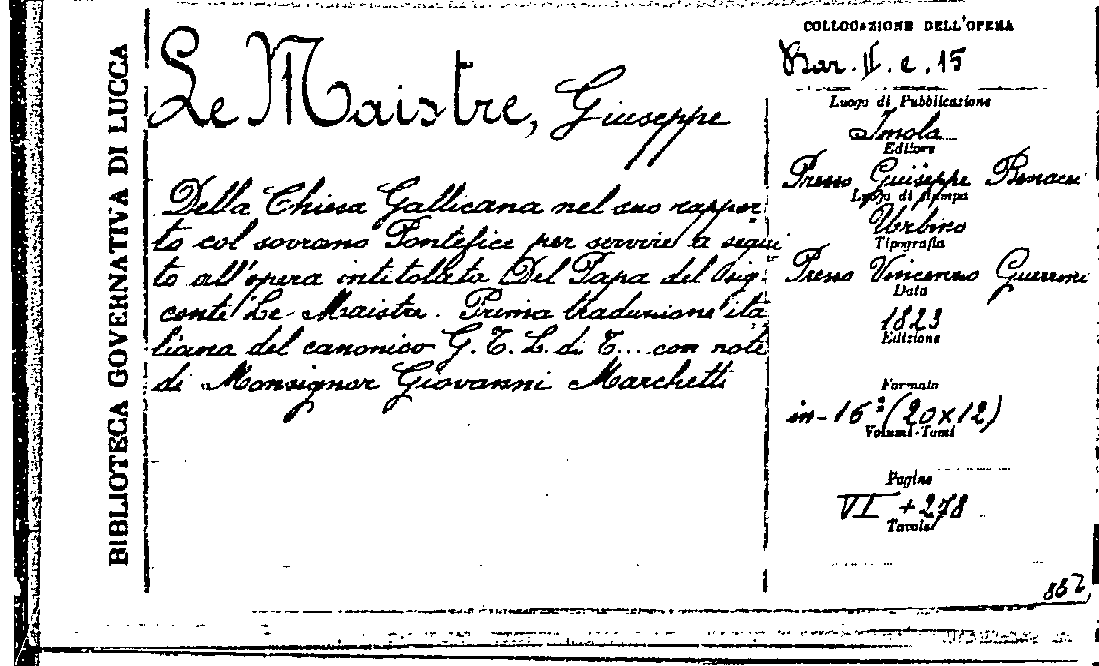 BIBLIOTECA GOVERNATIVA DI LUCCA
Le Maistre, Giuseppe
Della Chiesa Gallicana nel suo rappor-
to col sovrano Pontefice per servire a segui
to all'opera intitolata Del Papa del Sig.
conte Le Maistre. Prima traduzione ita
liana del canonico G. T. L. d. T... con note
di Monsignor Giovanni Marchetti
COLLOCAZIONE DELL'OPERA
II. e. 15
Luogo di Pubblicazione
Imola
Editore
Presso Guiseppe Benacci
Luogo di stampa
Urbino
Tipografia
Presso Vincenzo Guerrini
Data
1823
Edizione
Formato
in-16º (20x12)
Volumi-Tomi
Pagine
VI + 278
Tavole